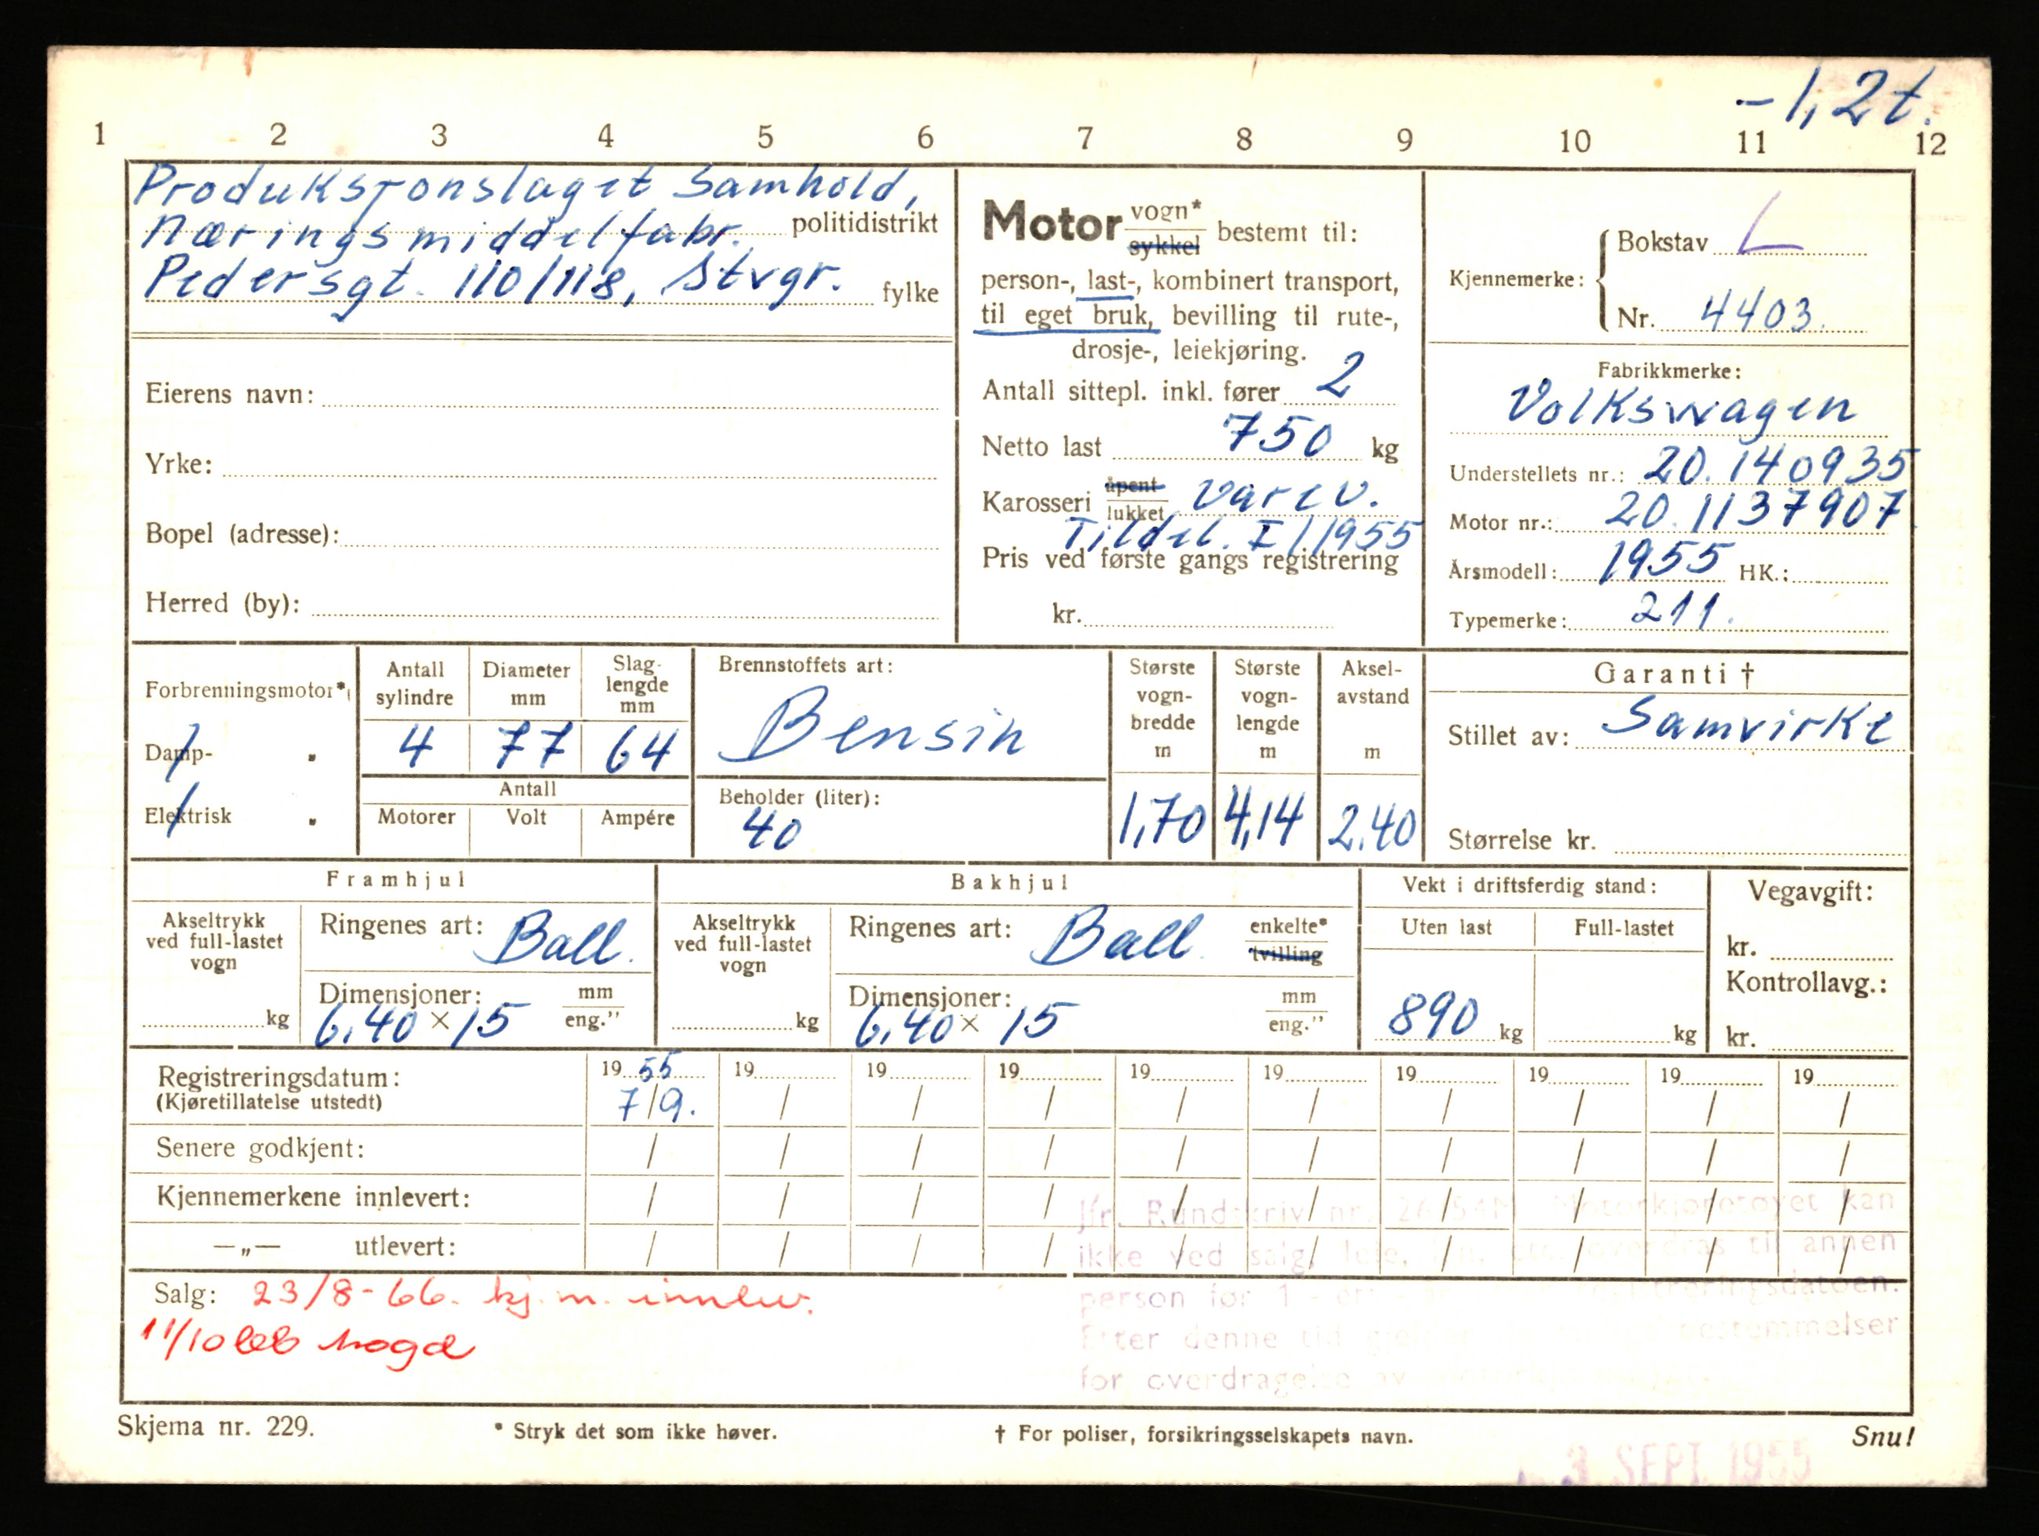 -1,2t.
1 2 3 4 5 6 7 8 9 10 11 12
Produksjonslaget Samhold,
Næringsmiddelfabr. politidistrikt
Pedersgt. 110/118, Stvgr. fylke
Eierens navn:
Yrke:
Bopel (adresse):
Herred (by):
Motor vogn* sykkel bestemt til:
person-, last-, kombinert transport,
til eget bruk, bevilling til rute-,
drosje-, leiekjøring.
Antall sittepl. inkl. fører 2
Netto last 750 kg
Karosseri åpent lukket varev.
Tildel. I/1955
Pris ved første gangs registrering
kr.
Kjennemerke: Bokstav L
Nr. 4403.
Fabrikkmerke:
Volkswagen
Understellets nr.: 20.140935
Motor nr.: 20.1137907.
Årsmodell: 1955 HK.:
Typemerke: 211.
Forbrenningsmotor*)
Damp- "
Elektrisk "
Antall sylindre Diameter mm Slag-lengde mm
4 77 64
Antall
Motorer Volt Ampére
Brennstoffets art:
Bensin
Beholder (liter):
40
Største vogn-bredde m
1,70
Største vogn-lengde m
4,14
Aksel-avstand m
2.40
Garanti †
Stillet av: Samvirke
Størrelse kr.
Framhjul
Akseltrykk ved full-lastet vogn
kg
Ringenes art: Ball.
Dimensjoner: mm eng."
6.40 × 15
Bakhjul
Akseltrykk ved full-lastet vogn
kg
Ringenes art: Ball. enkelte* tvilling
Dimensjoner: mm eng."
6.40 × 15
Vekt i driftsferdig stand:
Uten last Full-lastet
890 kg kg
Vegavgift:
kr.
Kontrollavg.:
kr.
Registreringsdatum: 1955 19 19 19 19 19 19 19 19 19
(Kjøretillatelse utstedt) 7/9. / / / / / / / / /
Senere godkjent: / / / / / / / / / /
Kjennemerkene innlevert: / / / / / / / / / /
—„— utlevert: / / / / / / / / / /
Jfr. Rundskriv nr. Motorkjøretøyet kan
ikke ved salg, leie, overdras til annen
person før 1
Etter denne tid bestemmelser
for overdragelse av
Salg: 23/8-66. kj.m. innlev.
11/10 hogd
Skjema nr. 229. * Stryk det som ikke høver. † For poliser, forsikringsselskapets navn. Snu!
3. SEPT. 1955